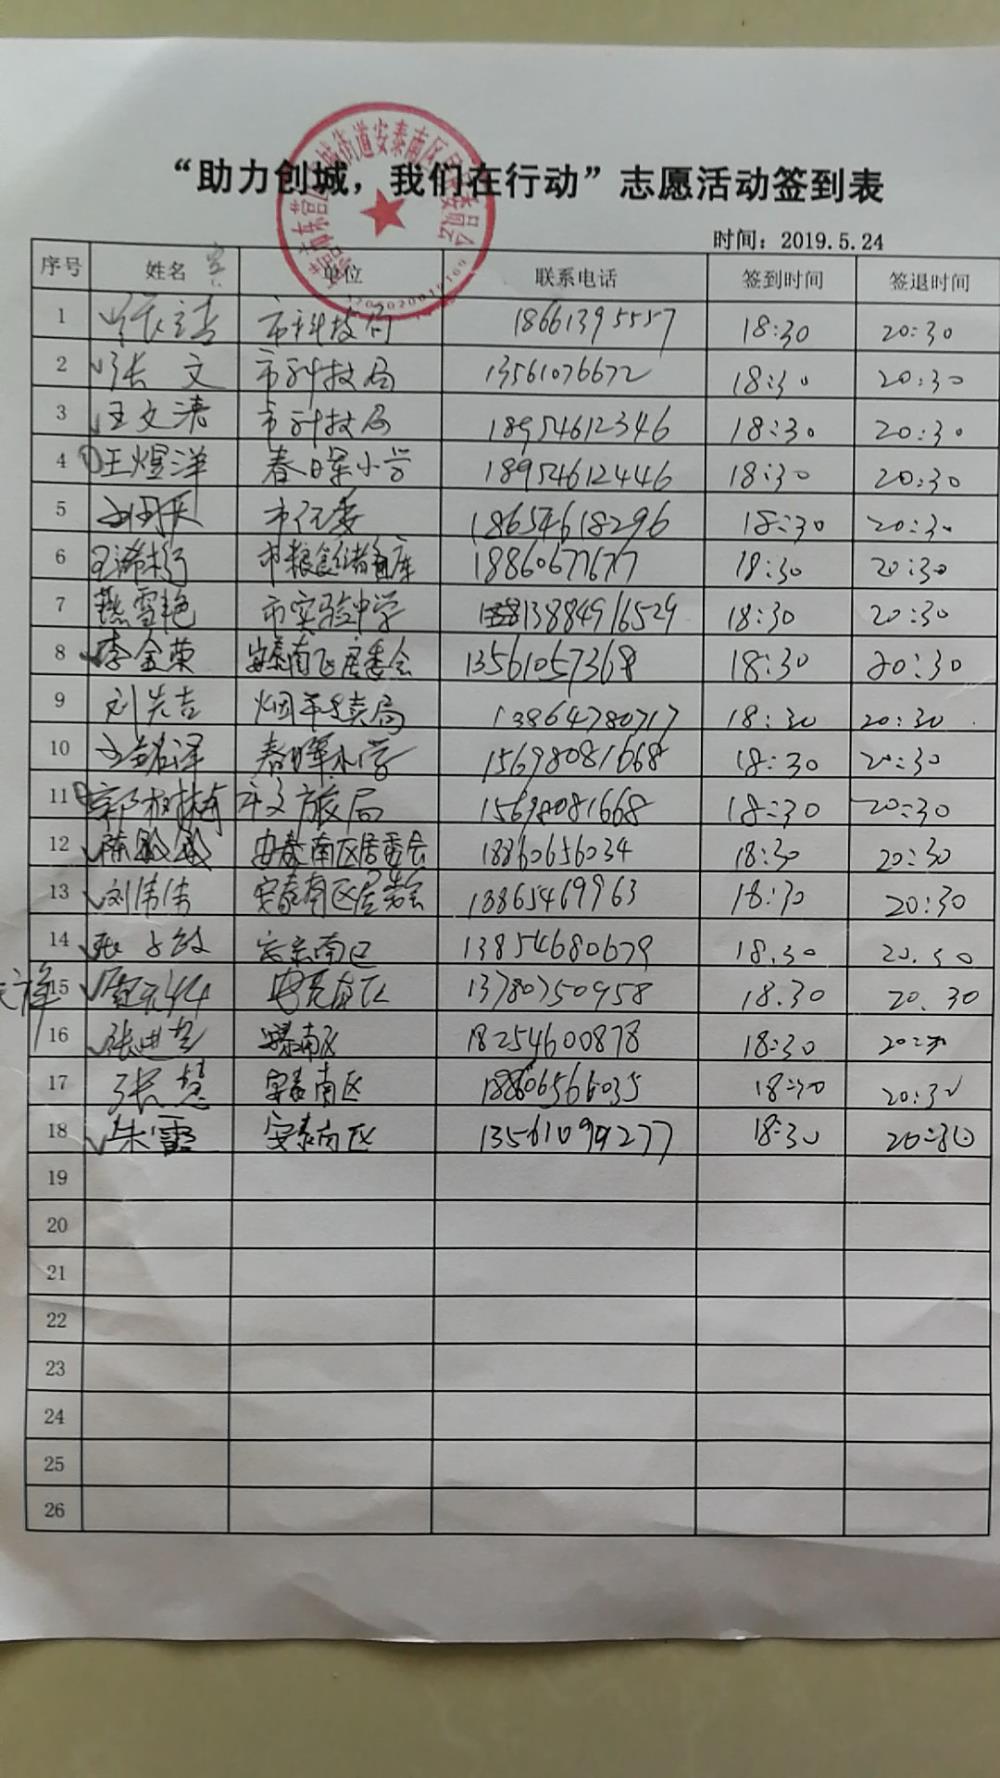 “助力创城，我们在行动”志愿活动签到表
时间：2019.5.24
序号 姓名 单位 联系电话 签到时间 签退时间
1 市科技局 18661395557 18:30 20:30
2 张文 市科技局 13561076672 18:30 20:30
3 王文涛 市科技局 18954612346 18:30 20:30
4 王煜洋 春晖小学 18954612446 18:30 20:30
5 18654618296 18:30 20:30
6 市粮食储备库 18860677677 18:30 20:30
7 燕雪艳 市实验中学 13884916529 18:30 20:30
8 李金荣 安泰南区居委会 13561057368 18:30 20:30
9 刘先吉 13864780717 18:30 20:30
10 春晖小学 15698081668 18:30 20:30
11 市文旅局 15698081668 18:30 20:30
12 陈敏敏 安泰南区居委会 18860656034 18:30 20:30
13 刘伟伟 安泰南区居委会 18865469963 18:30 20:30
14 安泰南区 13854680679 18.30 20.30
15 安泰南区 13780750958 18.30 20.30
16 安泰南区 18254600878 18:30 20:30
17 张慧 安泰南区 18:30 20:30
18 朱霞 安泰南区 18:30 20:30
19
20
21
22
23
24
25
26